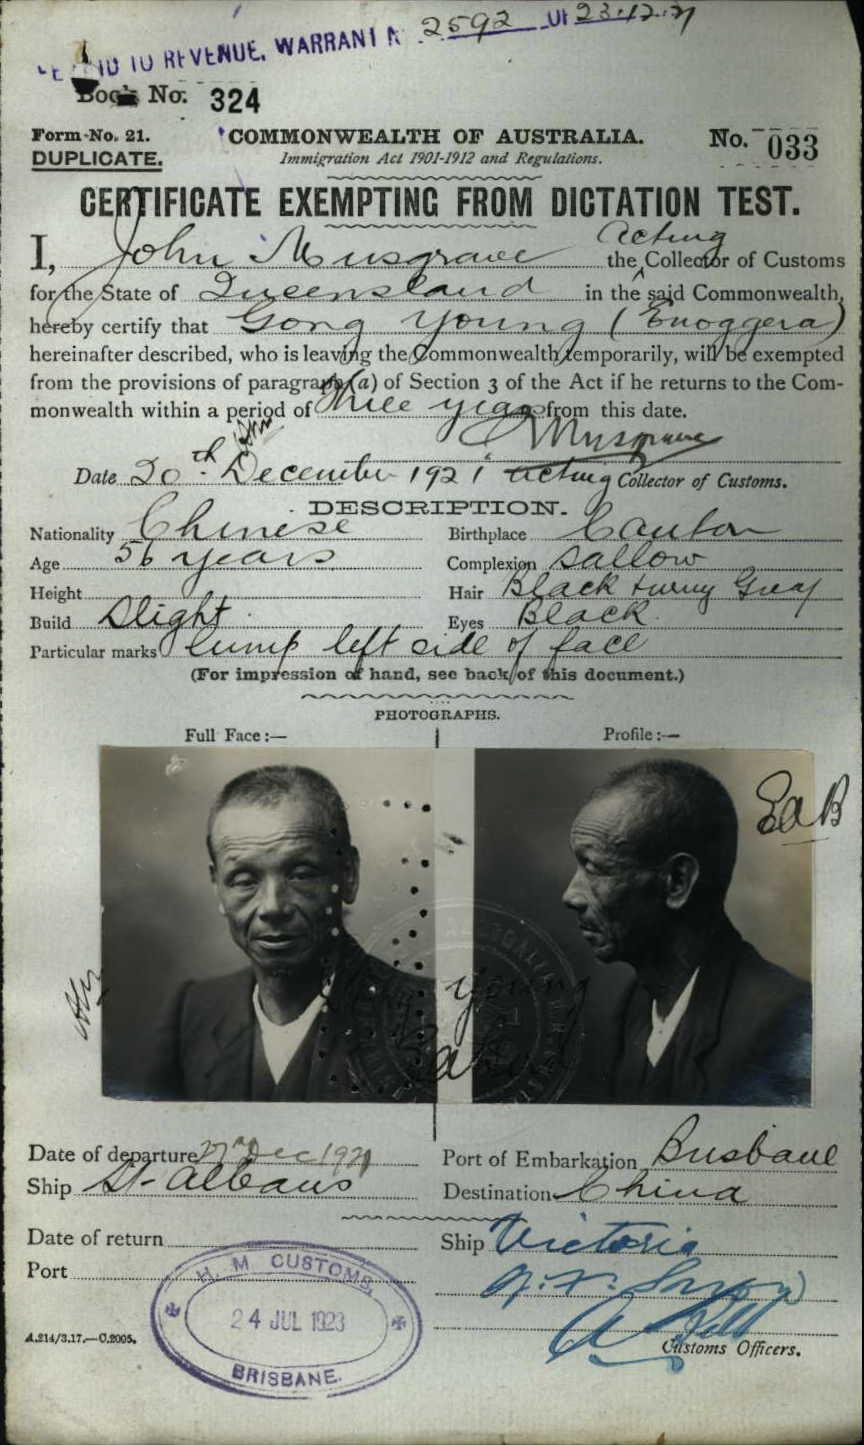 TO REVENUE. WARRANT N 2592 OF 23.12.21
Book No. 324
Form No. 21.
DUPLICATE.
COMMONWEALTH OF AUSTRALIA.
Immigration Act 1901-1912 and Regulations.
No. 033
CERTIFICATE EXEMPTING FROM DICTATION TEST.
I, John Musgrave the Acting Collector of Customs
for the State of Queensland in the said Commonwealth,
hereby certify that Gong Young (Enoggera)
hereinafter described, who is leaving the Commonwealth temporarily, will be exempted
from the provisions of paragraph (a) of Section 3 of the Act if he returns to the Com-
monwealth within a period of three years from this date.
J Musgrave
Date 20th December 1921 Acting Collector of Customs.
DESCRIPTION.
Nationality Chinese Birthplace Canton
Age 56 years Complexion Sallow
Height Hair Black turng Grey
Build Slight Eyes Black
Particular marks Lump left side of face
(For impression of hand, see back of this document.)
PHOTOGRAPHS.
Full Face :— Profile :—
Young
Date of departure Dec 1921 Port of Embarkation Brisbane
Ship St Albans Destination China
Date of return Ship Victoria
Port
H. M. CUSTOMS,
24 JUL 1923
BRISBANE.
A.214/3.17.—C.2005.
Customs Officers.